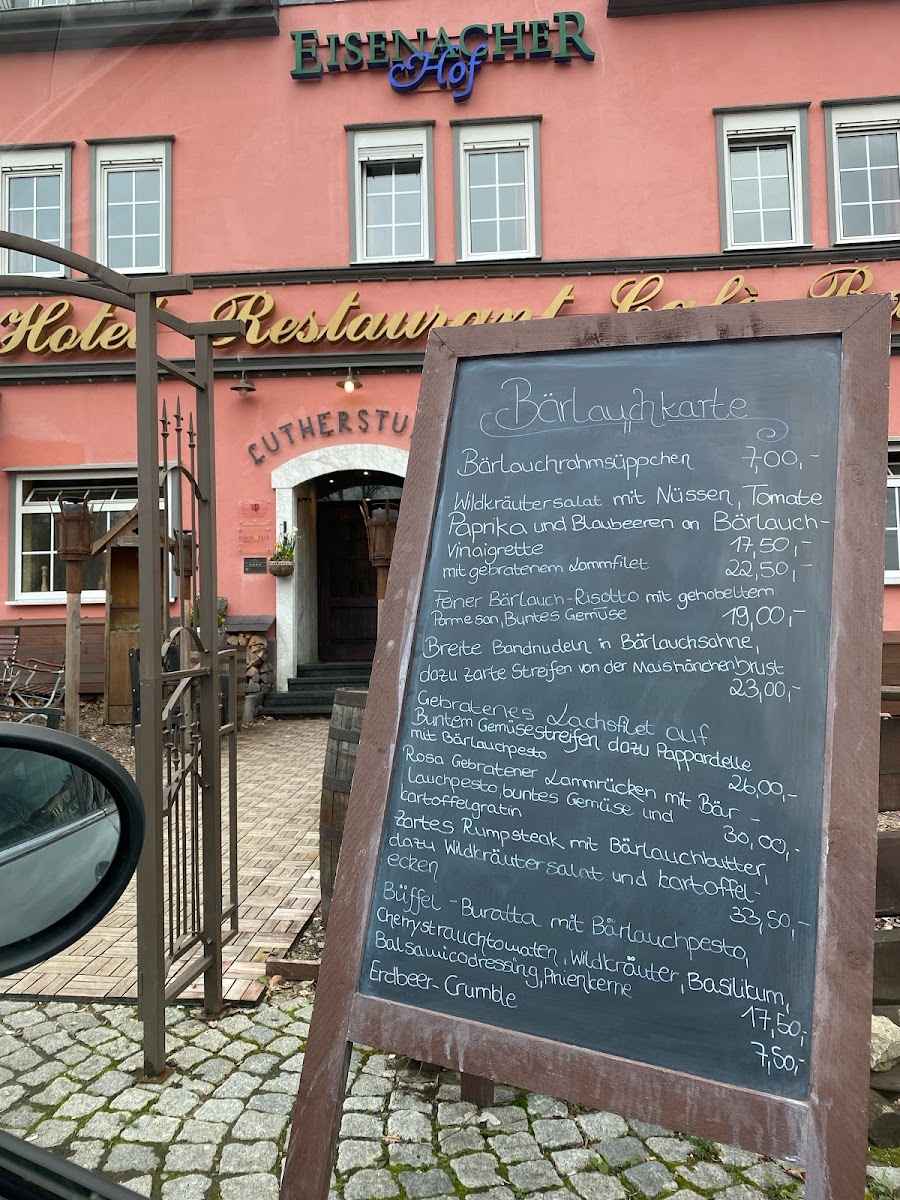 EISENACHER
Hof
Hotel Restaurant Cafè
LUTHERSTU
Bärlauchkarte
Bärlauchrahmsüppchen 7,00,-
Wildkräutersalat mit Nüssen, Tomate
Paprika und Blaubeeren an Bärlauch-
Vinaigrette 17,50,-
mit gebratenem Lammfilet 22,50,-
Feiner Bärlauch-Risotto mit gehobeltem
Parmesan, Buntes Gemüse 19,00,-
Breite Bandnudeln in Bärlauchsahne,
dazu zarte Streifen von der Maishänchenbrust
23,00,-
Gebratenes Lachsfilet auf
Buntem Gemüsestreifen dazu Pappardelle
mit Bärlauchpesto 26,00,-
Rosa Gebratener Lammrücken mit Bär-
lauchpesto, buntes Gemüse und
Kartoffelgratin 30,00,-
Zartes Rumpsteak mit Bärlauchbutter,
dazu Wildkräutersalat und Kartoffel-
ecken 33,50,-
Büffel-Buratta mit Bärlauchpesto,
Cherrystrauchtomaten, Wildkräuter, Basilikum,
Balsamicodressing, Pinienkerne 17,50,-
Erdbeer-Crumble 7,50,-